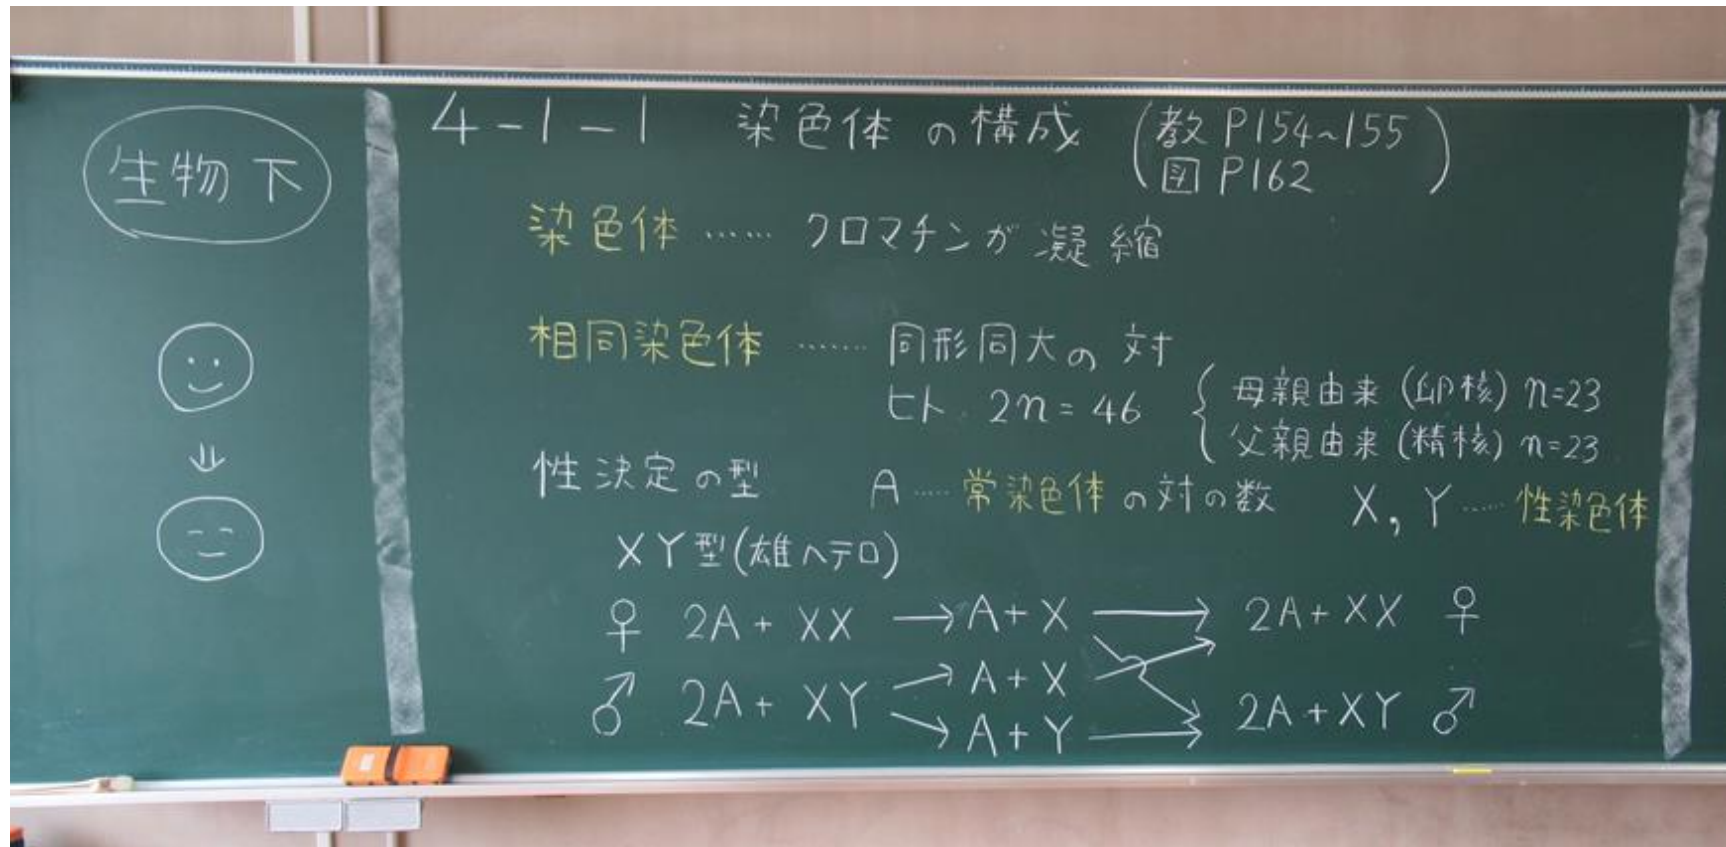 生物 下
4-1-1 染色体の構成 (教 P154~155
図 P162)
染色体 …… クロマチンが凝縮
相同染色体 ……. 同形同大の対
ヒト 2n = 46 { 母親由来 (卵核) n=23
父親由来 (精核) n=23
性決定の型 A …. 常染色体の対の数 X, Y …. 性染色体
XY型(雄ヘテロ)
♀ 2A + XX → A + X → 2A + XX ♀
→ A + X
♂ 2A + XY → A + Y → 2A + XY ♂